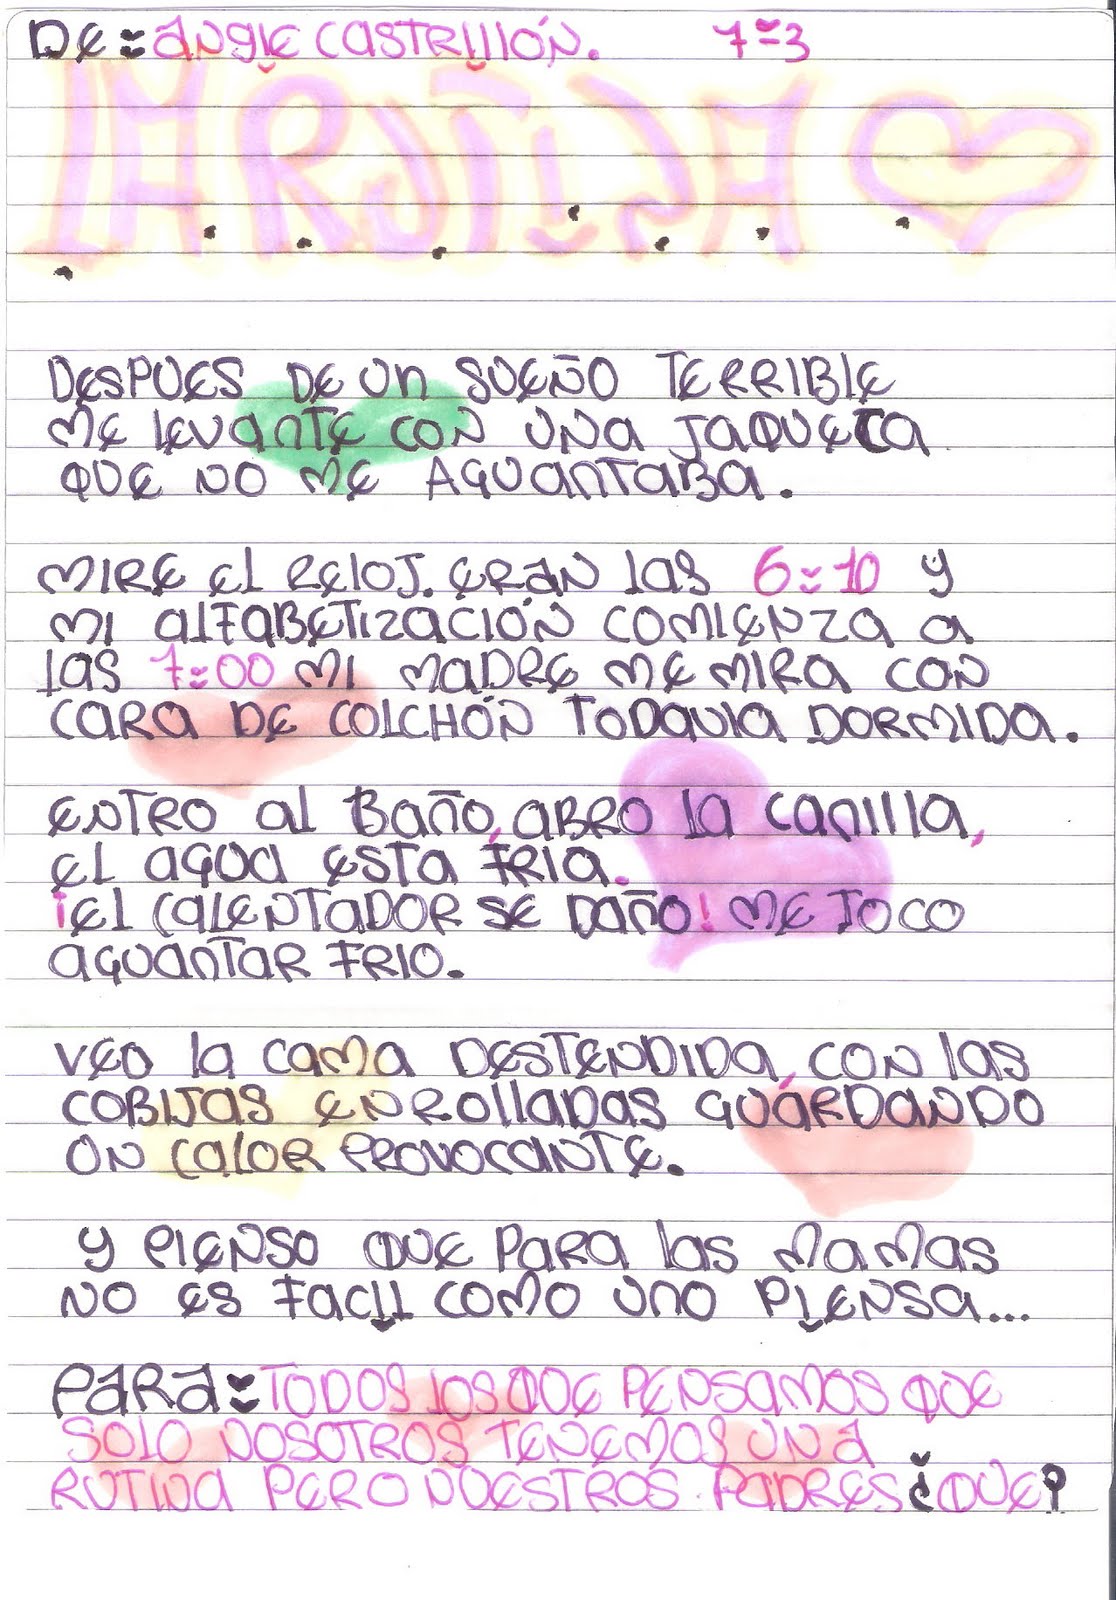 DE: ANGIE CASTRILLÓN. 7-3
LA RUTINA
DESPUES DE UN SUEÑO TERRIBLE
ME LEVANTE CON UNA JAQUECA
QUE NO ME AGUANTABA.
MIRE EL RELOJ. ERAN LAS 6:10 Y
MI ALFABETIZACIÓN COMIENZA A
LAS 7:00 MI MADRE ME MIRA CON
CARA DE COLCHÓN TODAVIA DORMIDA.
ENTRO AL BAÑO, ABRO LA CANILLA,
EL AGUA ESTA FRIA.
¡EL CALENTADOR SE DAÑO! ME TOCO
AGUANTAR FRIO.
VEO LA CAMA DESTENDIDA, CON LAS
COBIJAS ENROLLADAS GUARDANDO
UN CALOR PROVOCANTE.
Y PIENSO QUE PARA LAS MAMAS
NO ES FACIL COMO UNO PIENSA...
PARA: TODOS LOS QUE PENSAMOS QUE
SOLO NOSOTROS TENEMOS UNA
RUTINA PERO NUESTROS PADRES ¿QUE?